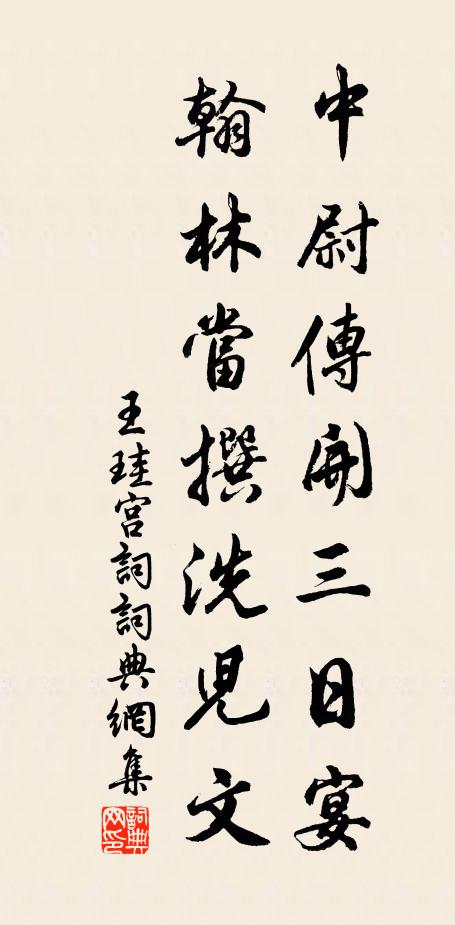 中尉傳開三日宴
翰林當撰洗児文
王珪宮詞詞典網集
詞典網印